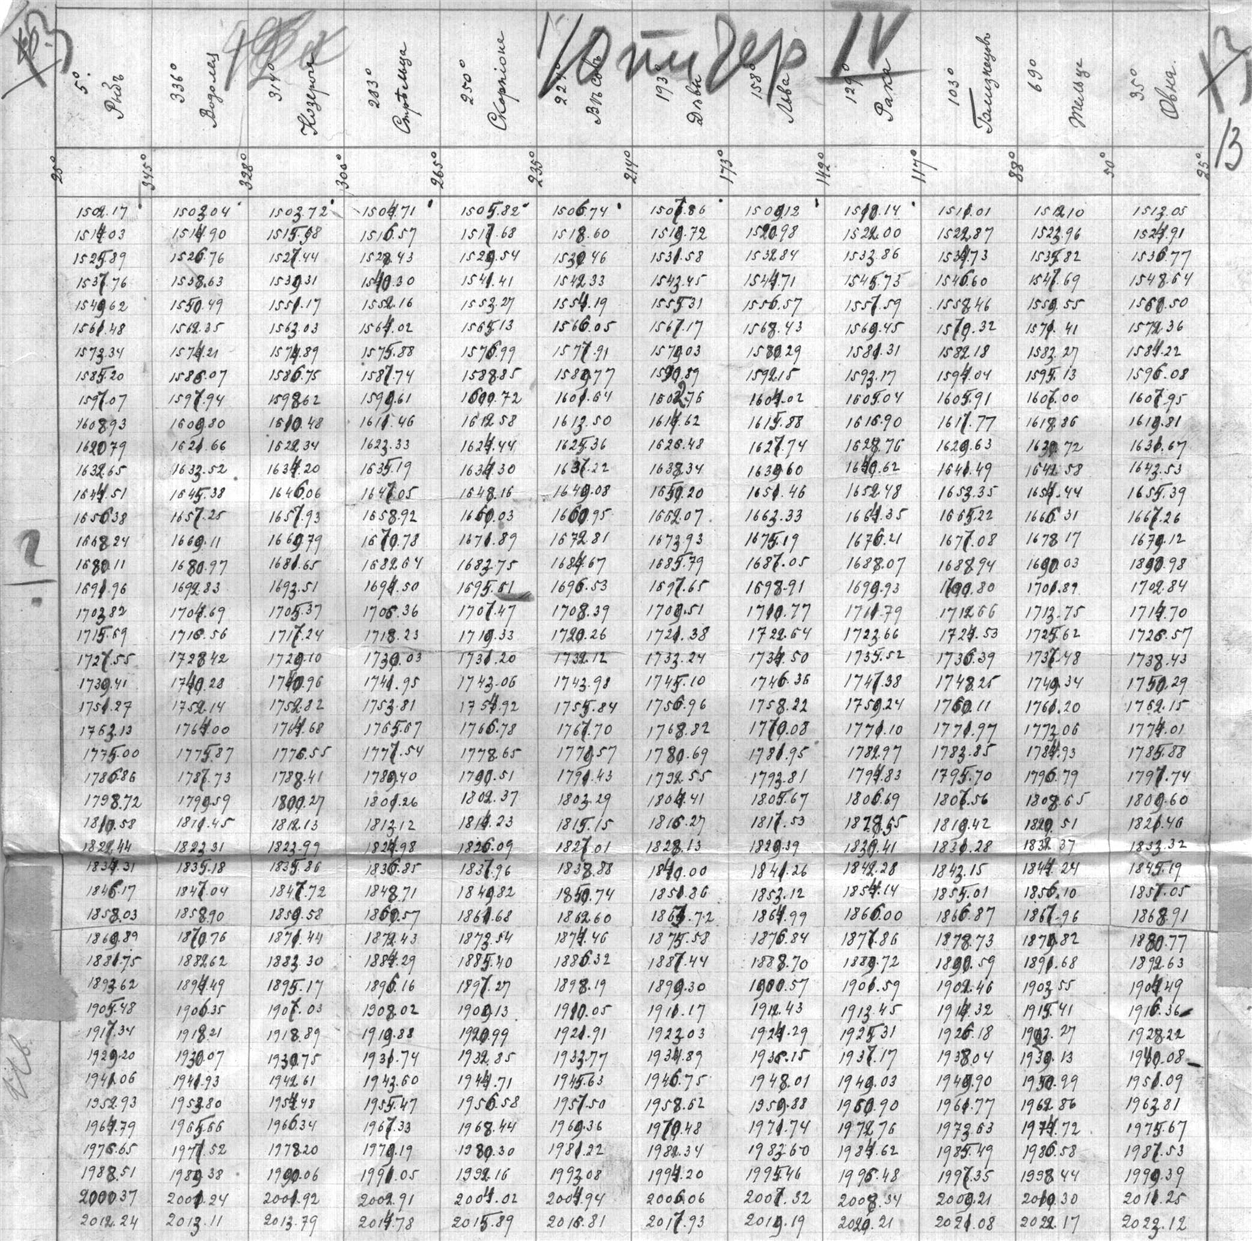 Юпитер IV
13
5° 336° 314° 283° 250° 224° 193 158° 129° 103° 69° 35°
Рыбъ Водолея Козерога Стрѣльца Скорпіона Вѣсовъ Дѣвы Льва Рака Близнецовъ Тельца Овна.
345° 328° 300° 265° 235° 214° 173° 142° 117° 88° 50° 25°
1502.17 1503.04 1503.72 1504.71 1505.82 1506.74 1507.86 1509.12 1510.14 1511.01 1512.10 1513.05
1514.03 1514.90 1515.58 1516.57 1517.68 1518.60 1519.72 1520.98 1522.00 1522.87 1523.96 1524.91
1525.89 1526.76 1527.44 1528.43 1529.54 1530.46 1531.58 1532.84 1533.86 1534.73 1535.82 1536.77
1537.76 1538.63 1539.31 1540.30 1541.41 1542.33 1543.45 1544.71 1545.73 1546.60 1547.69 1548.64
1549.62 1550.49 1551.17 1552.16 1553.27 1554.19 1555.31 1556.57 1557.59 1558.46 1559.55 1560.50
1561.48 1562.35 1563.03 1564.02 1565.13 1566.05 1567.17 1568.43 1569.45 1570.32 1571.41 1572.36
1573.34 1574.21 1574.89 1575.88 1576.99 1577.91 1579.03 1580.29 1581.31 1582.18 1583.27 1584.22
1585.20 1586.07 1586.75 1587.74 1588.85 1589.77 1590.89 1592.15 1593.17 1594.04 1595.13 1596.08
1597.07 1597.94 1598.62 1599.61 1600.72 1601.64 1602.76 1604.02 1605.04 1605.91 1607.00 1607.95
1608.93 1609.80 1610.48 1611.46 1612.58 1613.50 1614.62 1615.88 1616.90 1617.77 1618.86 1619.81
1620.79 1621.66 1622.34 1623.33 1624.44 1625.36 1626.48 1627.74 1628.76 1629.63 1630.72 1631.67
1632.65 1633.52 1634.20 1635.19 1634.30 1637.22 1638.34 1639.60 1640.62 1641.49 1642.58 1643.53
1644.51 1645.38 1646.06 1647.05 1648.16 1649.08 1650.20 1651.46 1652.48 1653.35 1654.44 1655.39
1656.38 1657.25 1657.93 1658.92 1660.03 1660.95 1662.07 1663.33 1664.35 1665.22 1666.31 1667.26
1668.24 1669.11 1669.79 1670.78 1671.89 1672.81 1673.93 1675.19 1676.21 1677.08 1678.17 1679.12
1680.11 1680.97 1681.65 1682.64 1683.75 1684.67 1685.79 1687.05 1688.07 1688.94 1690.03 1890.98
1691.96 1692.83 1693.51 1694.50 1695.61 1696.53 1697.65 1698.91 1699.93 1700.80 1701.89 1702.84
1703.82 1704.69 1705.37 1706.36 1707.47 1708.39 1709.51 1710.77 1711.79 1712.66 1713.75 1714.70
1715.69 1716.56 1717.24 1718.23 1719.33 1720.26 1721.38 1722.64 1723.66 1724.53 1725.62 1726.57
1727.55 1728.42 1729.10 1730.03 1731.20 1732.12 1733.24 1734.50 1735.52 1736.39 1737.48 1738.43
1739.41 1740.28 1740.96 1741.95 1743.06 1743.98 1745.10 1746.36 1747.38 1748.25 1749.34 1750.29
1751.27 1752.14 1752.82 1753.81 1754.92 1755.84 1756.96 1758.22 1759.24 1760.11 1761.20 1762.15
1763.13 1764.00 1764.68 1765.67 1766.78 1767.70 1768.82 1770.08 1771.10 1771.97 1773.06 1774.01
1775.00 1775.87 1776.55 1777.54 1778.65 1779.57 1780.69 1781.95 1782.97 1783.85 1784.93 1785.88
1786.86 1787.73 1788.41 1789.40 1790.51 1791.43 1792.55 1793.81 1794.83 1795.70 1796.79 1797.74
1798.72 1799.59 1800.27 1801.26 1802.37 1803.29 1804.41 1805.67 1806.69 1807.56 1808.65 1809.60
1810.58 1811.45 1812.13 1813.12 1814.23 1815.15 1816.27 1817.53 1818.55 1819.42 1820.51 1821.46
1822.44 1823.31 1823.99 1824.98 1826.09 1827.01 1828.13 1829.39 1830.41 1831.28 1832.37 1833.32
1834.31 1835.18 1835.86 1836.85 1837.96 1838.88 1840.00 1841.26 1842.28 1843.15 1844.24 1845.19
1846.17 1847.04 1847.72 1848.71 1849.82 1850.74 1851.86 1853.12 1854.14 1855.01 1856.10 1857.05
1858.03 1858.90 1859.58 1860.57 1861.68 1862.60 1863.72 1864.99 1866.00 1866.87 1867.96 1868.91
1869.89 1870.76 1871.44 1872.43 1873.54 1874.46 1875.58 1876.84 1877.86 1878.73 1879.82 1880.77
1881.75 1882.62 1883.30 1884.29 1885.40 1886.32 1887.44 1888.70 1889.72 1890.59 1891.68 1892.63
1893.62 1894.49 1895.17 1896.16 1897.27 1898.19 1899.30 1900.57 1901.59 1902.46 1903.55 1904.49
1905.48 1906.35 1907.03 1908.02 1909.13 1910.05 1911.17 1912.43 1913.45 1914.32 1915.41 1916.36
1917.34 1918.21 1918.89 1919.88 1920.99 1921.91 1923.03 1924.29 1925.31 1926.18 1927.27 1928.22
1929.20 1930.07 1930.75 1931.74 1932.85 1933.77 1934.89 1936.15 1937.17 1938.04 1939.13 1940.08
1941.06 1941.93 1942.61 1943.60 1944.71 1945.63 1946.75 1948.01 1949.03 1949.90 1950.99 1951.09
1952.93 1953.80 1954.48 1955.47 1956.58 1957.50 1958.62 1959.88 1960.90 1961.77 1962.86 1963.81
1964.79 1965.66 1966.34 1967.33 1968.44 1969.36 1970.48 1971.74 1972.76 1973.63 1974.72 1975.67
1976.65 1977.52 1978.20 1979.19 1980.30 1981.22 1982.34 1983.60 1984.62 1985.49 1986.58 1987.53
1988.51 1989.38 1990.06 1991.05 1992.16 1993.08 1994.20 1995.46 1996.48 1997.35 1998.44 1999.39
2000.37 2001.24 2001.92 2002.91 2004.02 2004.94 2006.06 2007.32 2008.34 2009.21 2010.30 2011.25
2012.24 2013.11 2013.79 2014.78 2015.89 2016.81 2017.93 2019.19 2020.21 2021.08 2022.17 2023.12